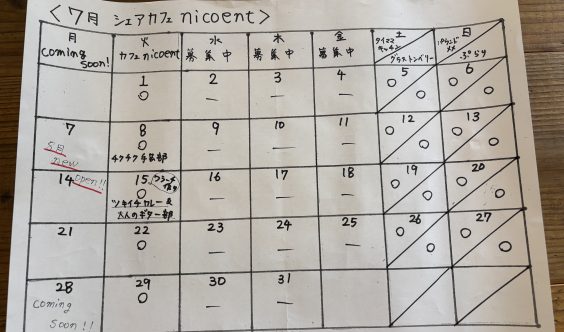 <7月 シェアカフェ nicoent>
月 火 水 木 金 土 日
coming soon! カフェnicoent 募集中 募集中 募集中
グラストンベリー
1 2 3 4 5 6
○ — — — ○ ○ ○ ○
7 8 9 10 11 12 13
5日 new ○ — — — ○ ○ ○ ○
チクチク手芸部
14 open!! 15 16 17 18 19 20
○ — — — ○ ○ ○ ○
ツキイチカレー&
大人のギター部
21 22 23 24 25 26 27
○ — — — ○ ○ ○ ○
28 29 30 31
coming ○ — —
soon!!